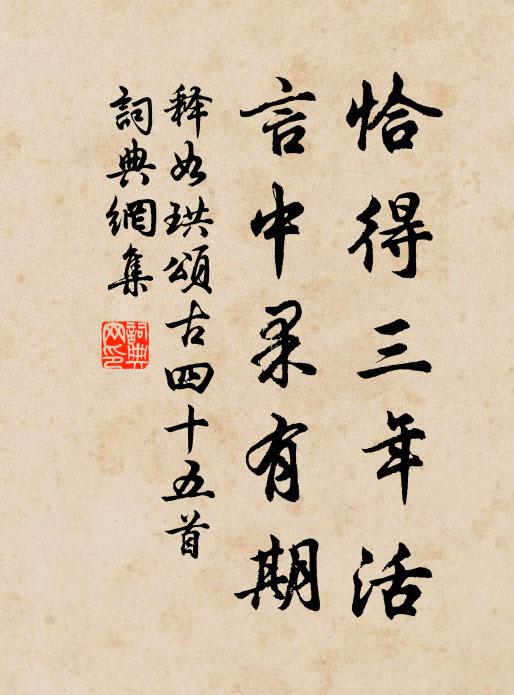 恰得三年活
言中果有期
释如珙頌古四十五首
詞典網集
詞典
网印